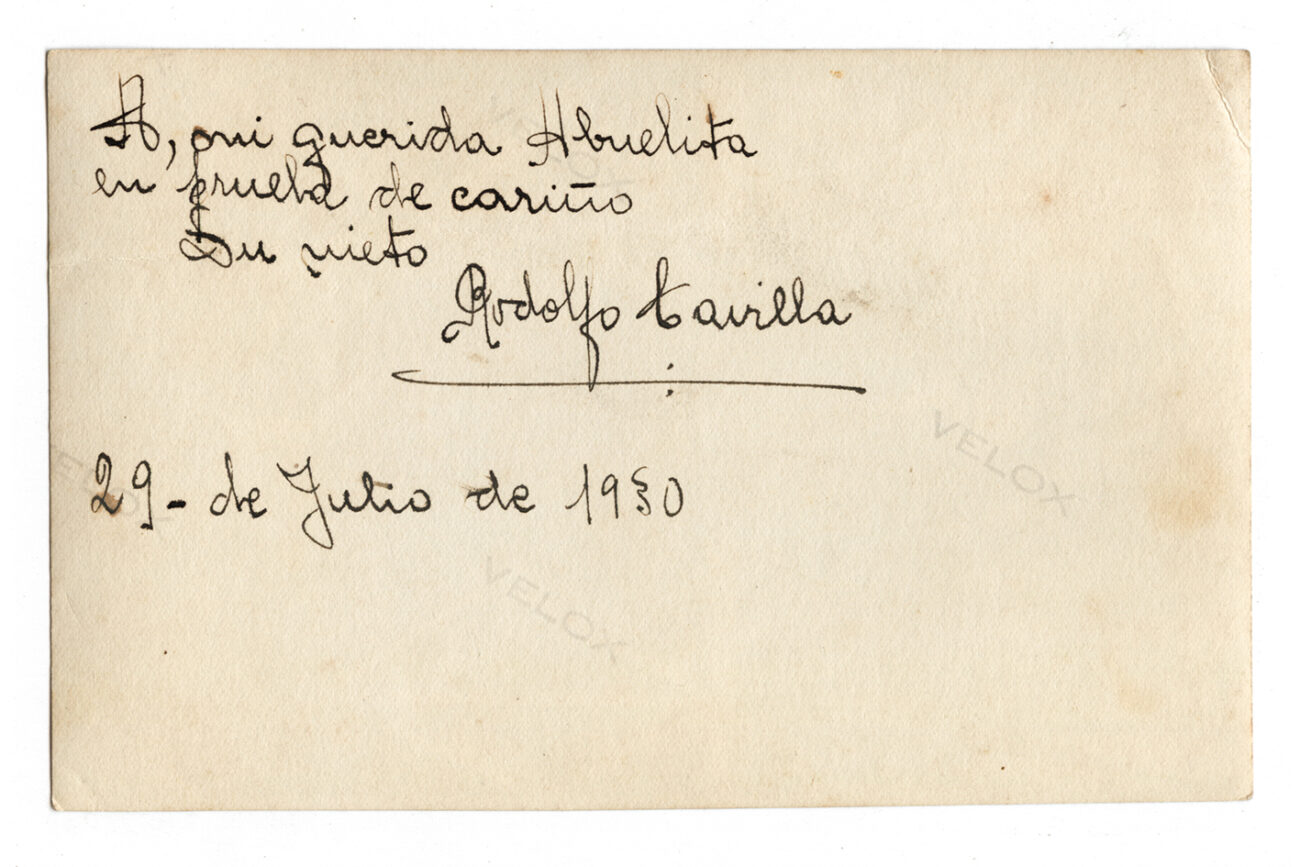 A, mi querida Abuelita
en prueba de cariño
Su nieto
Rodolfo Cavilla
29- de Julio de 1930
VELOX
VELOX
VELOX